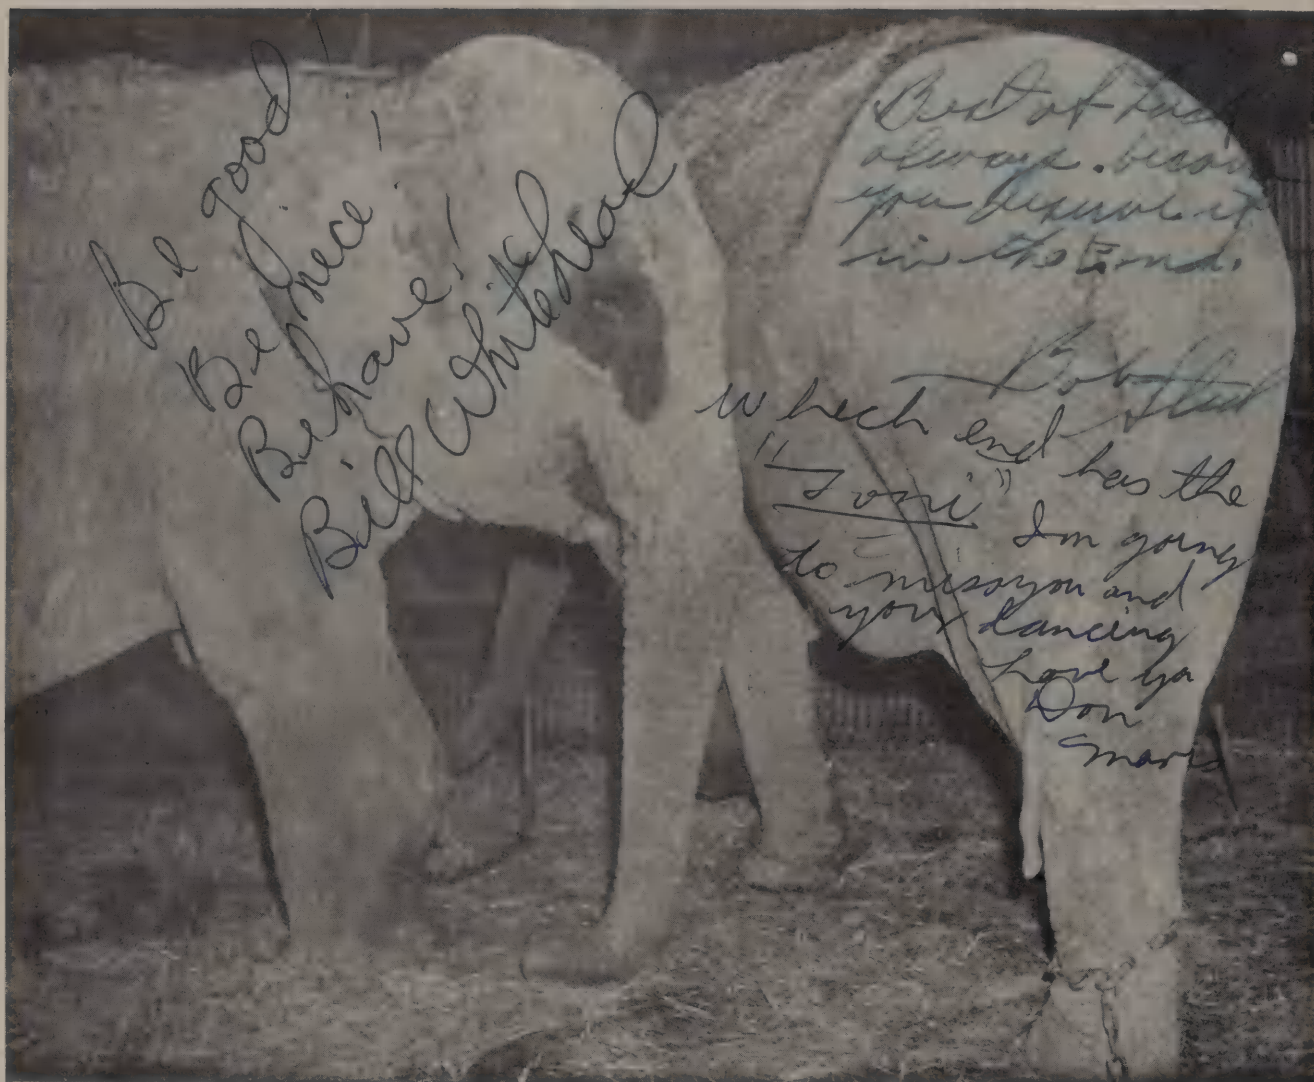 Be good!
Be nice!
Behave!
Bill Whitehead
Best of luck
always. becau
you deserve it
in the End.
Bob
Which end has the
"Toni" I'm going
to miss you and
your dancing
Love ya
Don